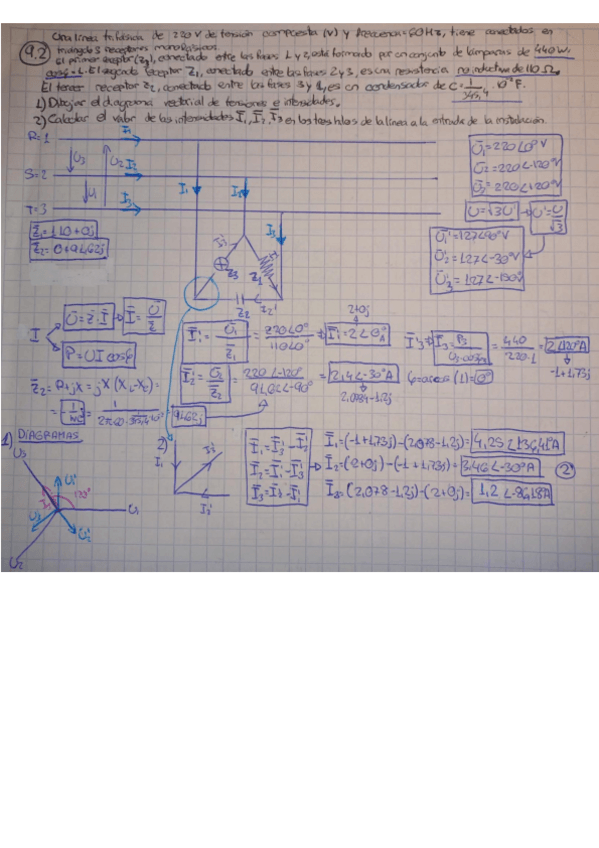 9.2
Una línea trifásica de 220 V de tensión compuesta (V) y frecuencia = 60 Hz, tiene conectados en
triángulo 3 receptores monofásicos.
El primer receptor (Z3), conectado entre las fases 1 y 2, está formado por un conjunto de lámparas de 440 W.
cosφ = 1. El segundo receptor Z1, conectado entre las fases 2 y 3, es una resistencia no inductiva de 110 Ω.
El tercer receptor Z2, conectado entre las fases 3 y 1, es un condensador de C = 1/345,4 · 10⁻² F.
1) Dibujar el diagrama vectorial de tensiones e intensidades.
2) Calcular el valor de las intensidades I1, I2, I3 en los tres hilos de la línea a la entrada de la instalación.
R=1 I1
U3 U2 I2
S=2
U1 I3
T=3
I1 I2 I3
Z3 Z1
Z2 I2'
Z1=110+0j
Z2=0+91,62j
U1=220∠0º V
U2=220∠-120º V
U3=220∠120º V
U=√3U' U'=U/√3
U1'=127∠90º V
U2'=127∠-30º V
U3'=127∠-150º V
I
U=Z·I I=U/Z
P=UI cosφ
I1'=U1/Z1 = 220∠0º/110∠0º I1'=2∠0º A
2+0j
I2'=U2/Z2 = 220∠-120º/91,62∠-90º = 2,4∠-30º A
2,078-1,2j
I3' I3=P3/U3·cosφ = 440/220·1 = 2∠120º A
-1+1,73j
φ=arcos (1)=0º
Z2=R+jX=jX (XL-XC)=
= -1/WC = 91,62j
1) DIAGRAMAS
U3
U1'
I3
120º
U1
U3'
U2'
U2
2)
I1
I2'
I3'
I1=I3'-I2'
I2=I1'-I3'
I3=I2'-I1'
I1=(-1+1,73j)-(2,078-1,2j)=4,25∠136,41º A
I2=(2+0j)-(-1+1,73j)=3,46∠-30º A
I3=(2,078-1,2j)-(2+0j)=1,2∠-86,18º A
2